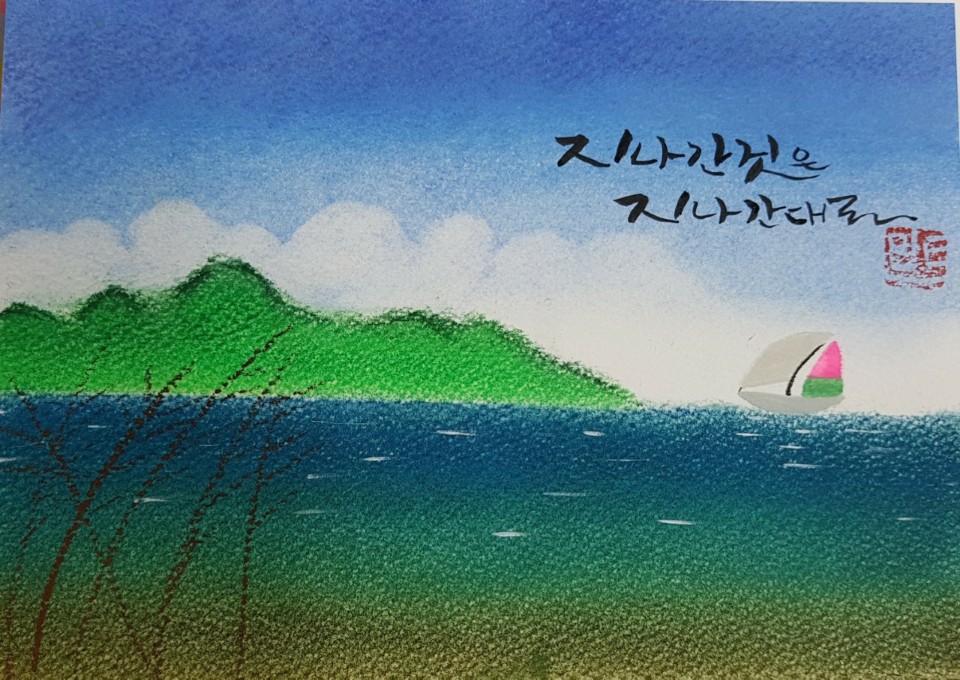 지나간것은
지나간대로